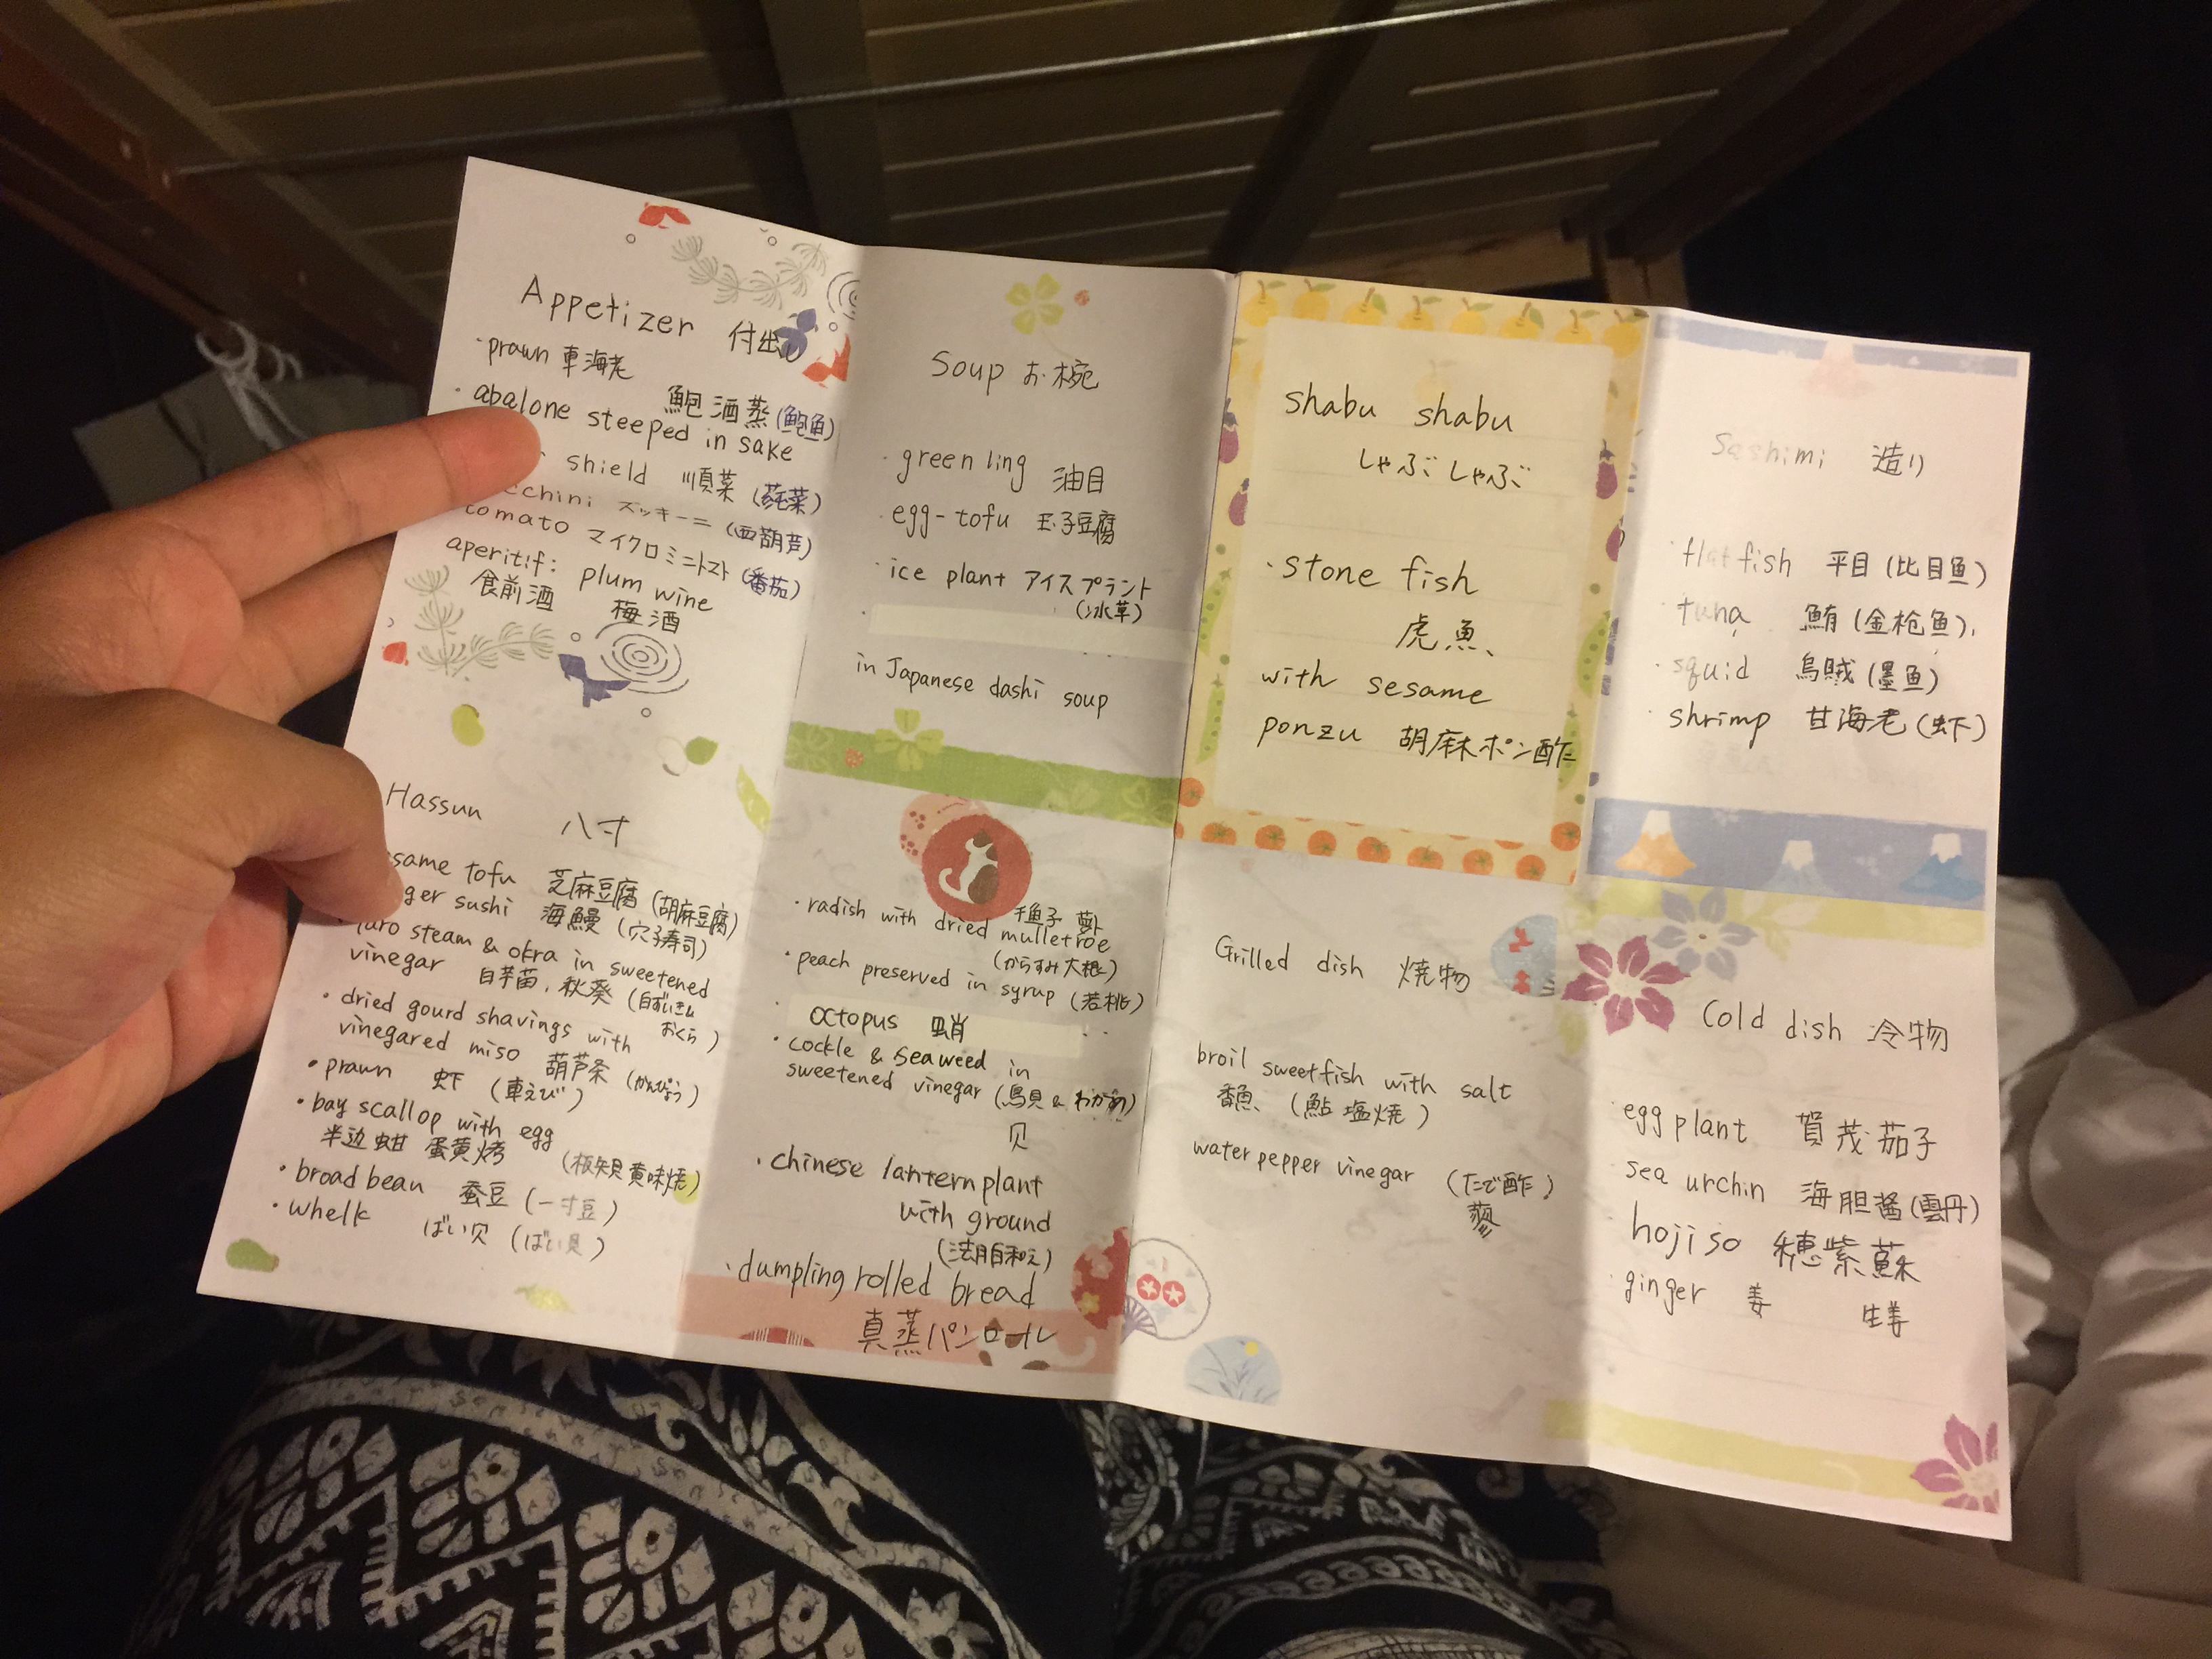 Appetizer 付出し
・prawn 車海老
鮑酒蒸(鮑魚)
・abalone steeped in sake
shield 順菜 (莼菜)
cchini ズッキーニ (西葫芦)
tomato マイクロミニトマト (番茄)
aperitif: plum wine
食前酒 梅酒
Soup お椀
・green ling 油目
・egg-tofu 玉子豆腐
・ice plant アイスプラント
(冰草)
in Japanese dashi soup
shabu shabu
しゃぶしゃぶ
・stone fish
虎魚
with sesame
ponzu 胡麻ポン酢
Sashimi 造り
・flat fish 平目 (比目鱼)
・tuna 鮪 (金枪鱼)
・squid 烏賊 (墨鱼)
・shrimp 甘海老 (虾)
Hassun 八寸
same tofu 芝麻豆腐 (胡麻豆腐)
ger sushi 海鰻 (穴子寿司)
taro steam & okra in sweetened
vinegar 白芋苗, 秋葵 (白ずいきん
おくら)
・dried gourd shavings with
vinegared miso 葫芦条 (かんぴょう)
・prawn 虾 (車えび)
・bay scallop with egg
半边蚶 蛋黄烤 (板矢貝黄味焼)
・broad bean 蚕豆 (一寸豆)
・whelk ばい贝 (ばい貝)
・radish with dried mullet roe
(からすみ大根)
・peach preserved in syrup (若桃)
octopus 蛸
・cockle & seaweed in
sweetened vinegar (鳥貝 & わかめ)
贝
・chinese lantern plant
with ground
・dumpling rolled bread
真蒸パンロール
Grilled dish 焼物
broil sweetfish with salt
香魚 (鮎塩焼)
water pepper vinegar (たで酢)
蓼
Cold dish 冷物
・egg plant 賀茂茄子
sea urchin 海胆酱 (雲丹)
hojiso 穂紫蘇
・ginger 姜 生姜